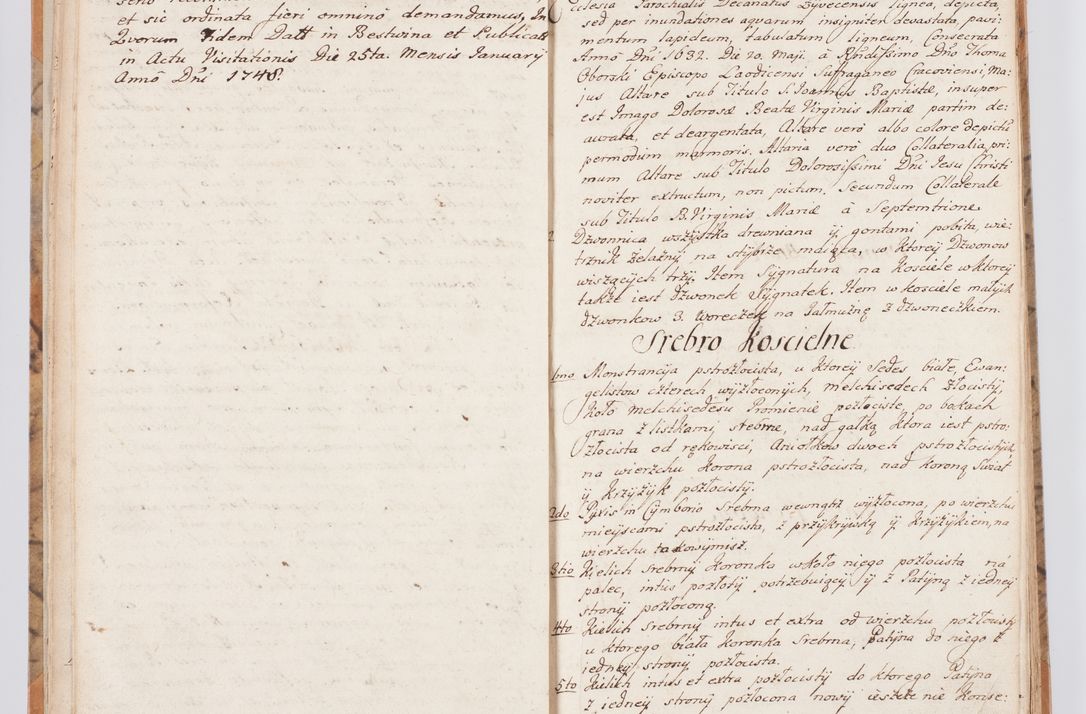 et sic ordinata fieri omninò demandamus, In
Quorum Fidem Datt in Bestwina et Publicatt
in Actu Visitationis Die 25ta. Mensis Januarÿ
Annô Dni 1748.
Ecclesia Parochialis Decanatus Zyvecensis lignea, depicta,
sed per inundationes aquarum insigniter devastata, pavi:
mentum lapideum, tabulatum ligneum, Consecrata
Annô Dni 1632. Die 20. Maji. à Rndissimo Dno Thoma
Oborski Episcopo Laodicensi Suffraganeo Cracoviensi, Ma:
jus Altare sub Titulo S. Joannis Baptistæ, insuper
est Imago Dolorosæ Beatæ Virginis Mariæ partim de:
aurata, et deargentata, Altare verò albo colore depictũ
permodum marmoris. Altaria verò duo Collateralia, pri:
mum Altare sub Titulo Dolorosissimi Dni Jesu Christi
noviter extructum, non pictum. Secundum Collaterale
sub Titulo B. Virginis Mariæ à Septemtrione.
Dzwonnica wszystka drewniana ÿ gontami pobita, wie:
trznik żelazny na stybrze maiąca, w ktorey Dzwonow
wiszących trzy. Item Sygnatura na Kosciele w ktorey
także iest dzwonek Sygnatek. Item w kosciele małych
dzwonkow 3. woreczek na Jałmużnę z dzwoneczkiem.
Srebro Koscielne
1mo Monstrancyia pstrozłocista, u ktorey Sedes białe, Ewan:
gelistow czterech wyzłoconych, melchisedech złocisty,
koło Melchisedesu Promienie pozłociste, po bokach
grana z listkami srebrne, nad gałką ktora iest pstro:
złocista od rękowisci, Aniołkow dwoch pstrozłocistych,
na wierzchu korona pstrozłocista, nad koroną Swiat
ÿ krzyżyk pozłocisty.
2do Pyxis in Cymborio Srebrna wewnątrz wyzłocona, po wierzchu
mieyscami pstrozłocista, z przykrywką ÿ krzyżykiem, na
wierzchu takowymisz.
3tio Kielich Srebrny koronka wkoło niego pozłocista na
palec, intus pozłoty potrzebuiący, ÿ z Patyną z iedney
strony pozłoconą.
4to Kielich Srebrny intus et extra od wierzchu pozłocisty
u ktorego biała koronka Srebrna, Patyna do niego z
iedney strony pozłocista.
5to Kielich intus et extra pozłocisty do ktorego Patyna
z iedney strony pozłocona nowy ieszcze nie Konse: